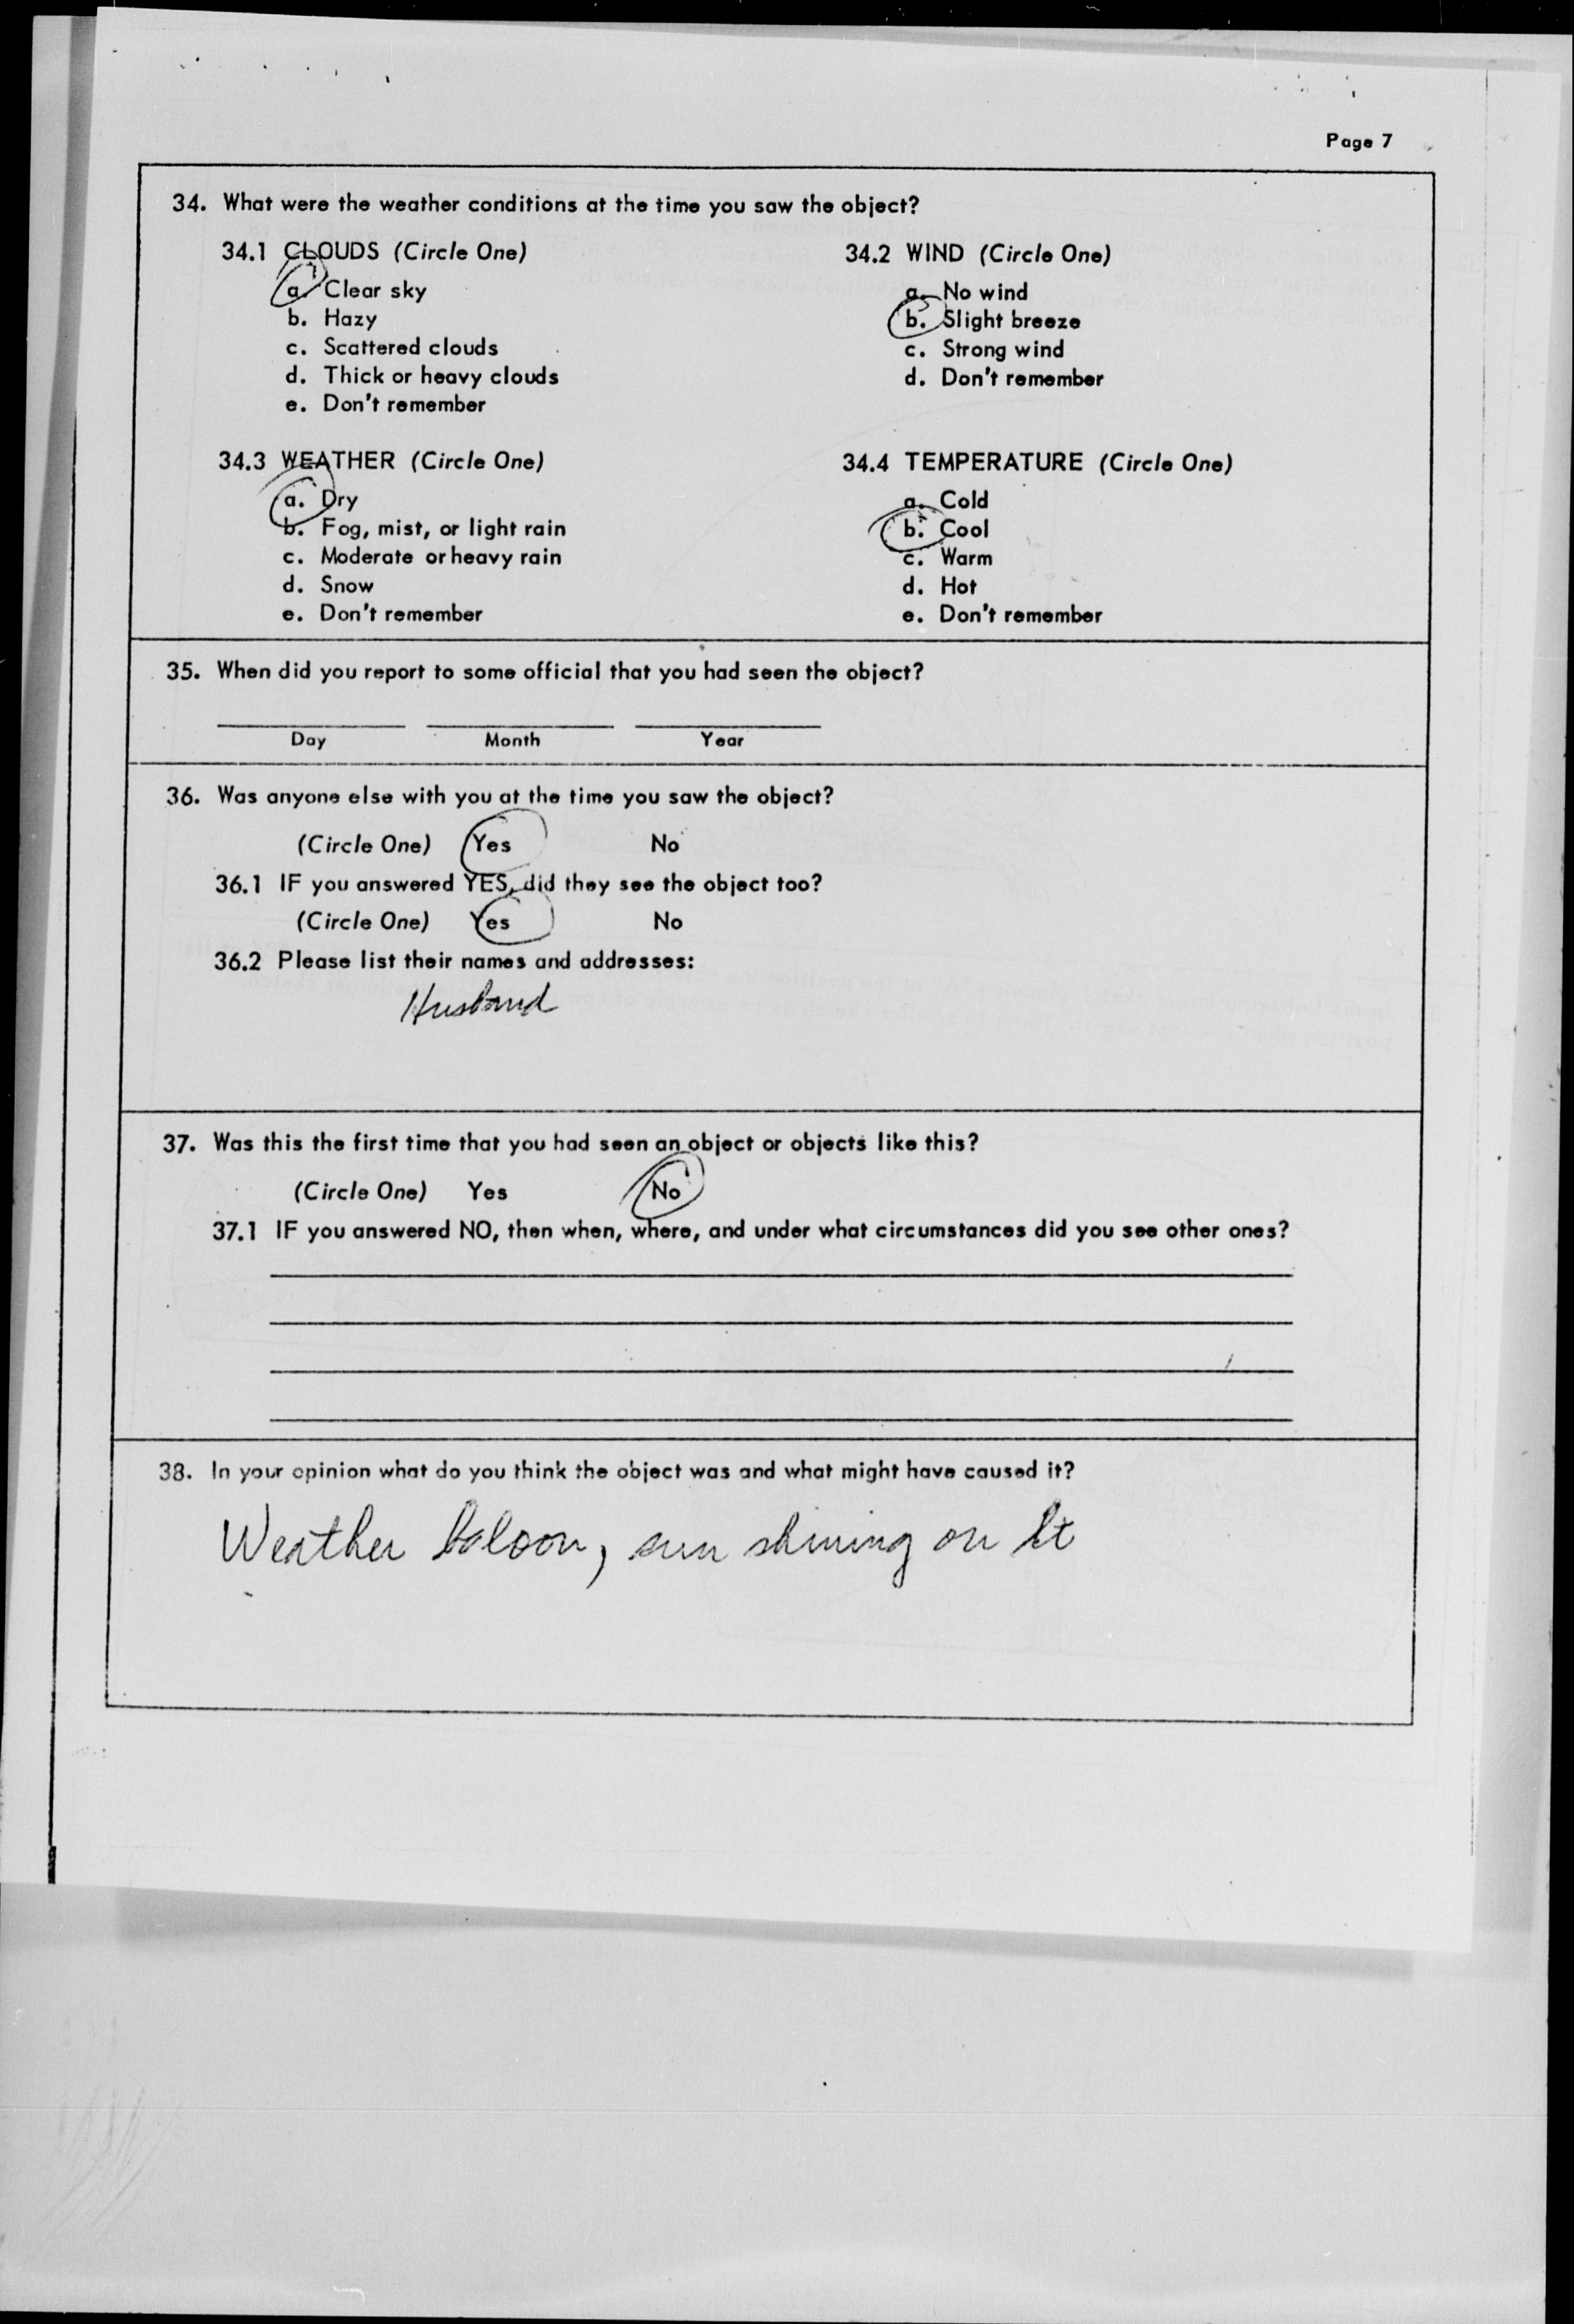 Page 7
34. What were the weather conditions at the time you saw the object?
34.1 CLOUDS (Circle One)
a. Clear sky
b. Hazy
c. Scattered clouds
d. Thick or heavy clouds
e. Don't remember
34.2 WIND (Circle One)
a. No wind
b. Slight breeze
c. Strong wind
d. Don't remember
34.3 WEATHER (Circle One)
a. Dry
b. Fog, mist, or light rain
c. Moderate or heavy rain
d. Snow
e. Don't remember
34.4 TEMPERATURE (Circle One)
a. Cold
b. Cool
c. Warm
d. Hot
e. Don't remember
35. When did you report to some official that you had seen the object?
Day Month Year
36. Was anyone else with you at the time you saw the object?
(Circle One) Yes No
36.1 IF you answered YES, did they see the object too?
(Circle One) Yes No
36.2 Please list their names and addresses:
Husband
37. Was this the first time that you had seen an object or objects like this?
(Circle One) Yes No
37.1 IF you answered NO, then when, where, and under what circumstances did you see other ones?
38. In your opinion what do you think the object was and what might have caused it?
Weather baloon, sun shining on it